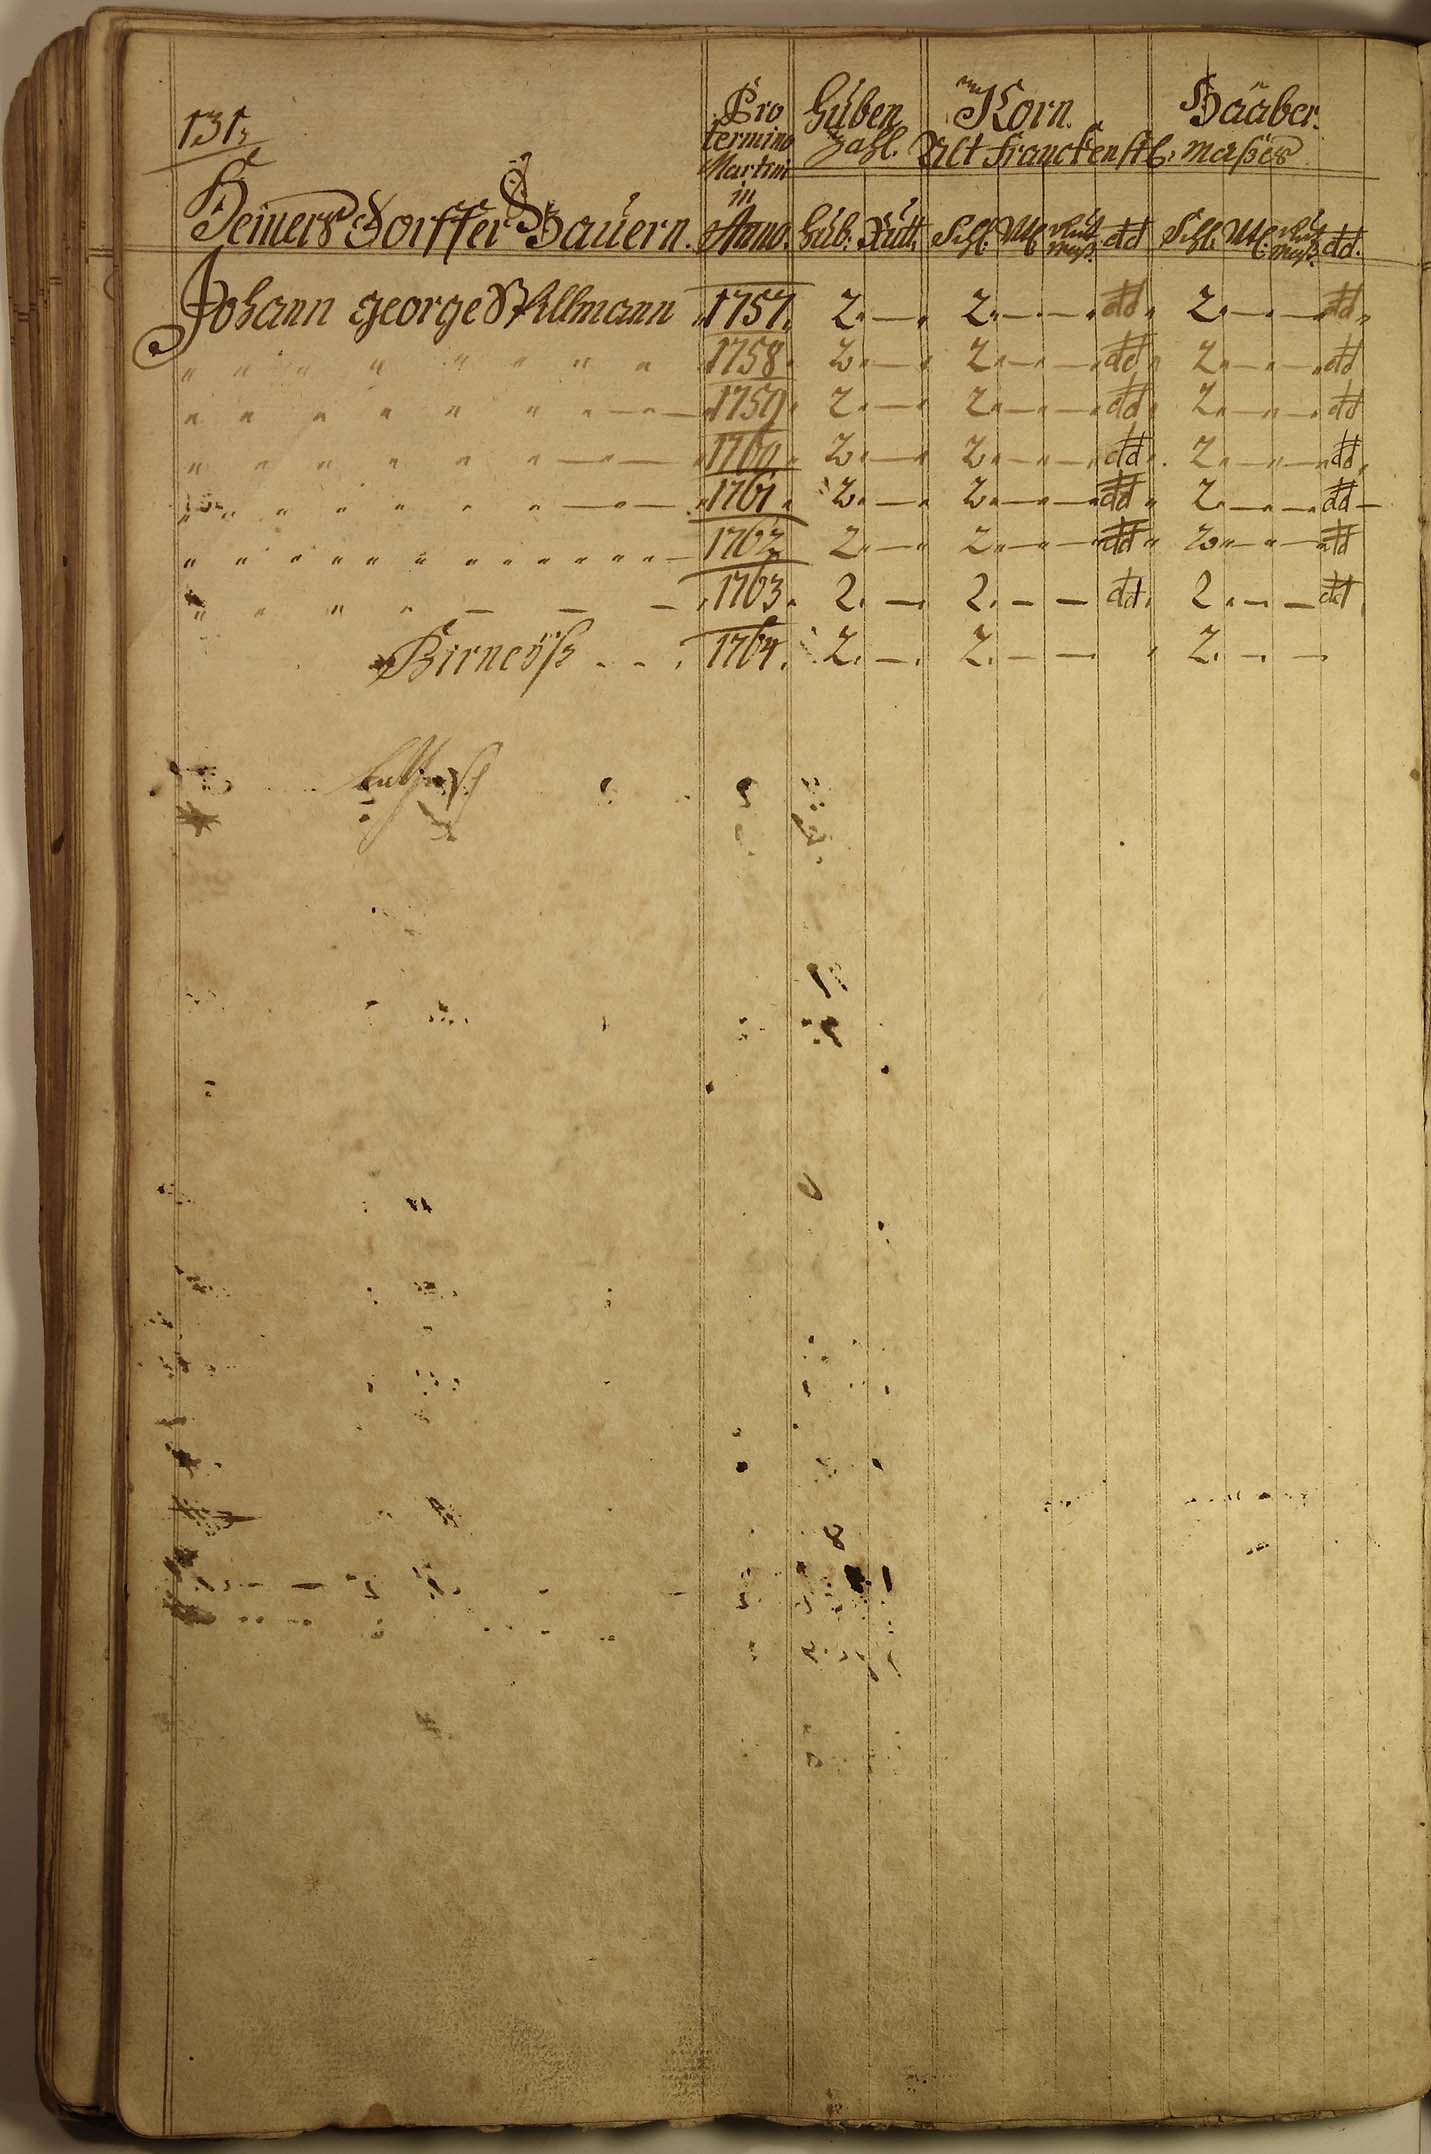 131,
Pro termino Martini in Anno. Huben Zahl. Korn. Haaber.
Alt Franckenstb: Maßes
Heinersdorffer Bauern. Hub. Rutt. Schl. Mtl. dd Schl. Mtl. dd.
Johann george Allmann 1757. 2. — . 2. — . — . dd 2. — . — . dd
" " " " " " " " 1758. 2. — . 2. — . — . dd 2. — . — . dd
" " " " " " " — " — 1759. 2. — . 2. — . — . dd 2. — . — . dd
" " " " " " — " — 1760. 2. — . 2. — . — . dd 2. — . — . dd
" " " " " " " — " — 1761. 2. — . 2. — . — . dd 2. — . — . dd —
" " " " " " " " " " " " " — 1762 2. — . 2. — . — . dd 2. — . — . dd
" " " " — — — 1763. 2. — . 2. — — dd 2. — . — dd
Birneyß - - : 1764. 2. — . 2. — — " 2. — . —